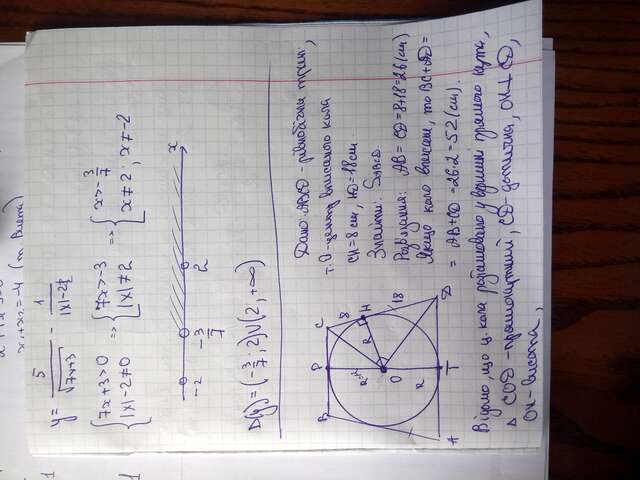 x₁+x₂=-4 (т. Вієта)
y = 5/√(7x+3) - 1/(|x|-2)
{7x+3>0 |x|-2≠0 => {7x>-3 |x|≠2 => {x>-3/7 x≠2; x≠-2
-2 -3/7 2 x
D(y)=(-3/7; 2)∪(2; +∞)
Дано: ABCD - рівнобічна трап.,
т. O - центр вписаного кола
CH=8 см, HD=18 см.
Знайти: S_ABCD.
Розв'язання: AB = CD = 8+18=26 (см)
Якщо коло вписане, то BC+AD=
= AB+CD = 26·2 = 52 (см).
B P C 8 H R 18 O R A T D
Відомо, що ц. кола розташовано у вершині прямого кута,
Δ COD - прямокутний, CD - дотична, OH ⊥ CD,
OH - висота,